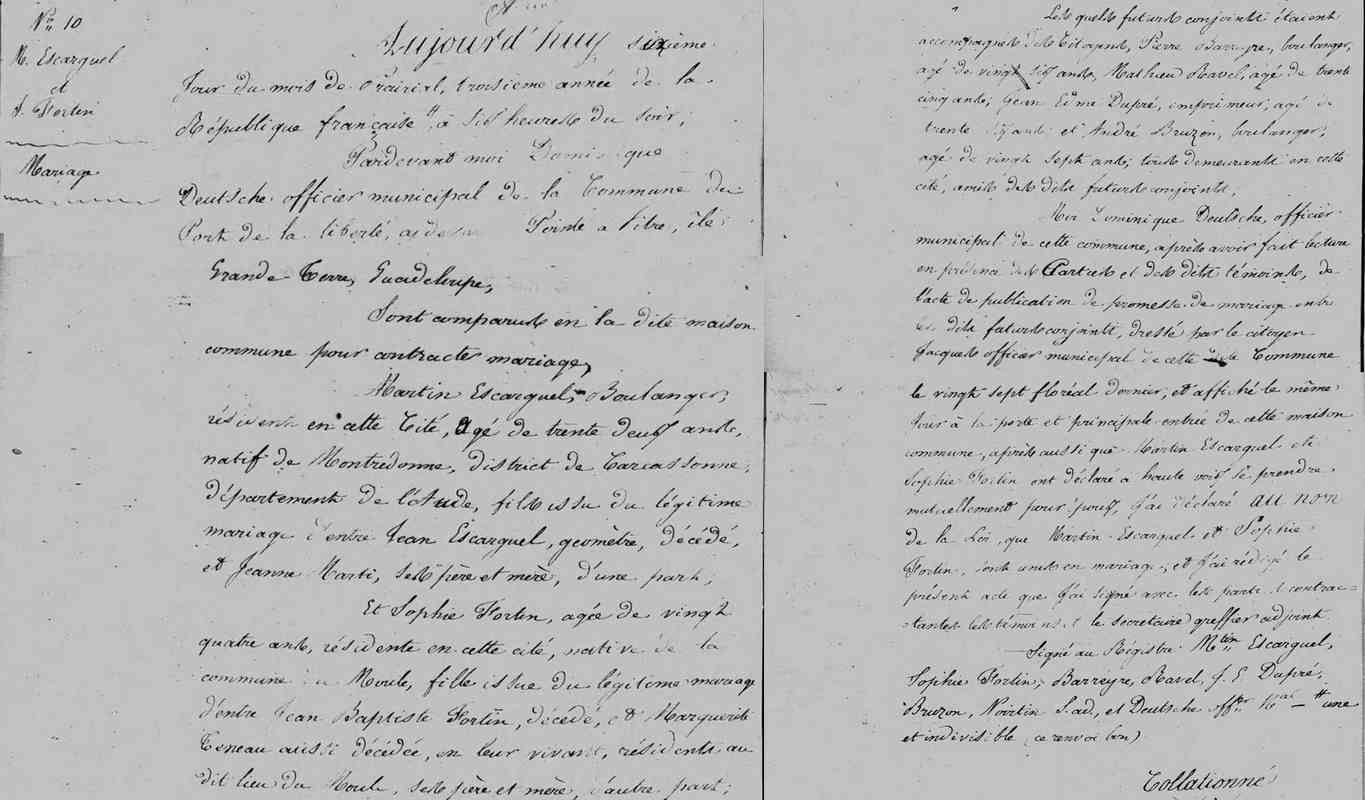 No. 10
M. Escarguel
et
S. Fortin
Mariage
Aujourd'huy sixième
Jour du mois de Prairial, troisieme année de la
République française #, à six heures du soir;
Pardevant moi Dominique
Deutsche officier municipal de la Commune du
Port de la liberté, ci devant Pointe a Pitre, île
Grande-Terre, Guadeloupe,
Sont comparus en la dite maison
commune pour contracter mariage,
Martin Escarguel, Boulanger,
résident en cette Cité, Agé de trente deux ans,
natif de Montredonne, district de Carcassonne,
département de l'Aude, fils issu du légitime
mariage d'entre Jean Escarguel, géomètre, décédé,
et Jeanne Marti, ses père et mère, d'une part;
Et Sophie Fortin, agée de vingt
quatre ans, résidente en cette cité, native de la
commune du Moule, fille issue du légitime mariage
d'entre Jean Baptiste Fortin, décédé, et Marguerite
Teneau aussi décédée, en leur vivant, résidents au
dit lieu du Moule, ses père et mère, d'autre part;
Les quels futurs conjoints étaient
accompagnés des Citoyens, Pierre Barreyre, boulanger,
agé de vingt six ans, Mathieu Ravel, agé de trente
cinq ans; Jean Edme Dupré, imprimeur, agé de
trente ans et André Bruzon, boulanger,
agé de vingt sept ans; tous demeurant en cette
cité, amis des dits futurs conjoints.
Moi Dominique Deutsche, officier
municipal de cette commune, après avoir fait lecture
en présence des Parties et des dits témoins, de
l'acte de publication de promesse de mariage entre
les dits futurs conjoints, dressé par le citoyen
Jacques officier municipal de cette Commune
le vingt sept floréal dernier, et affiché le même
jour à la porte et principale entrée de cette maison
commune, après aussi que Martin Escarguel et
Sophie Fortin ont déclaré a haute voix se prendre
mutuellement pour époux, J'ai déclaré au nom
de la Loi, que Martin Escarguel et Sophie
Fortin, sont unis en mariage, et J'ai rédigé le
présent acte que J'ai signé avec les parties contrac-
tantes les témoins et le secretaire greffier adjoint
Signé au Régistre Mtin Escarguel,
Sophie Fortin, Barreyre, Ravel, J. E. Dupré,
Bruzon, Nortin S. ad, et Deutsche offer Mal — # une
et indivisible (ce renvoi bon)
Collationné